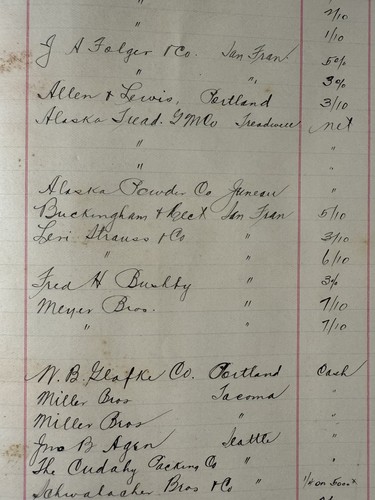 " 2/10
" 1/10
J A Folger & Co. San Fran. 5%
" " 3%
Allen & Lewis, Portland 3/10
Alaska Tread. G M Co Treadwell net
" "
" "
Alaska Powder Co Juneau "
Buckingham & Hect San Fran 5/10
Levi Strauss & Co " 3/10
" " 6/10
Fred H Bushby " 3%
Meyer Bros. " 7/10
" " 7/10
W. B. Glafke Co. Portland Cash
Miller Bros Tacoma "
Miller Bros " "
Jno B Agen Seattle "
The Cudahy Packing Co " "
Schwabacher Bros & Co "